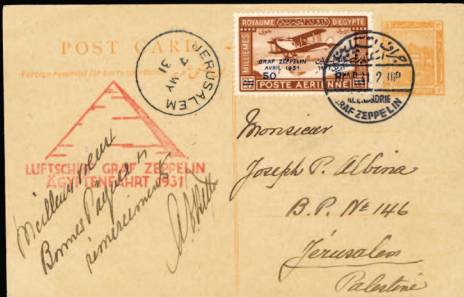 POST CARD
JERUSALEM
4 MY
31
ROYAUME D'EGYPTE
MILLIEMES
GRAF ZEPPELIN
AVRIL 1931
50
POSTE AERIENNE
ALEXANDRIE
GRAF ZEPPELIN
LUFTSCHIFF GRAF ZEPPELIN
ÄGYPTENFAHRT 1931
Meilleurs voeux
Bonnes Pâques
Monsieur
Joseph P. Albina
B.P. No 146
Jérusalem
Palestine